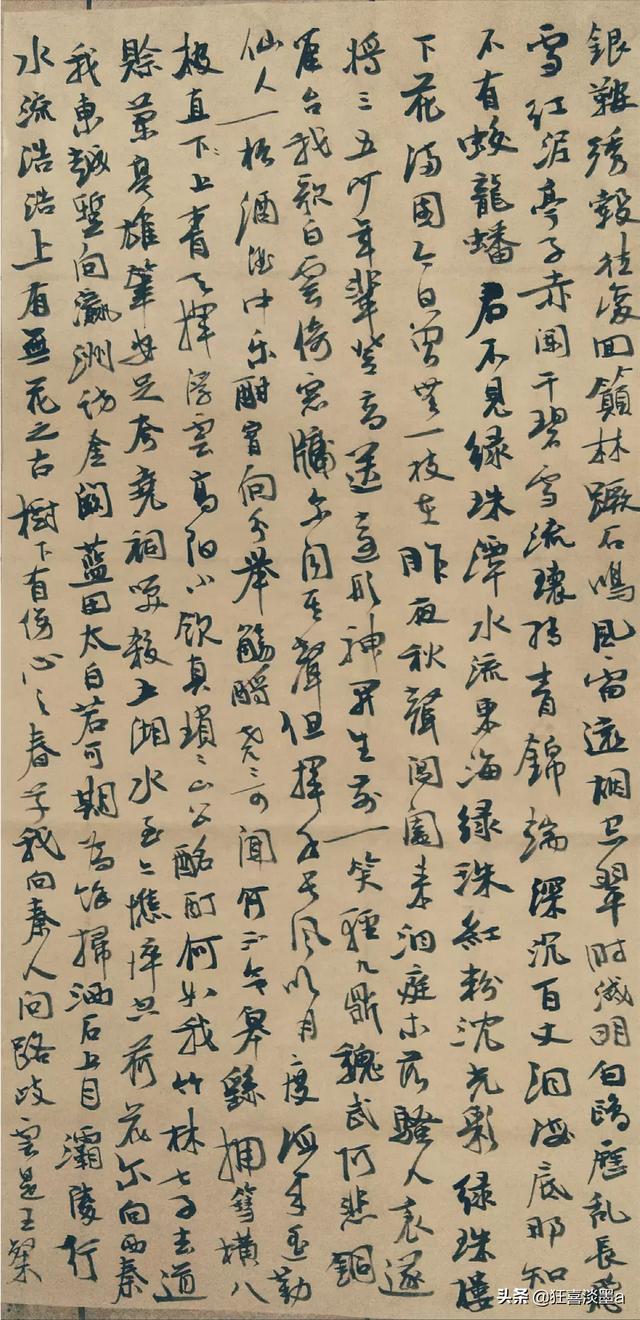 銀鞍綉轂往復回簸林蹶石鳴風雷遠烟空翠時滅明白鷗歷亂長飛
雪紅泥亭子赤闌干碧雪流環轉青錦湍深沉百丈洞海底那知
不有蛟龍蟠君不見緑珠潭水流東海緑珠紅粉沈光彩緑珠樓
下花滿園今日曾無一枝在昨夜秋聲閶闔來洞庭木落騷人哀遂
將三五少年輩登高遠望形神開生前一笑輕九鼎魏武何悲銅
雀台我歌白雲倚窓牖尔聞其聲但揮手長風吹月度海來遥勸
仙人一杯酒酒中樂酣宵向分舉觴酹堯堯可聞何不令皋繇擁篲橫八
極直下上青天揮浮雲高陽小飲真瑣瑣山公酩酊何如我竹林七子去道
賒蘭亭雄筆安足夸堯祠笑殺五湖水至今憔悴空荷花尔向西秦
我東越暫向瀛洲訪金闕藍田太白若可期為余掃洒石上月灞陵行
水流浩浩上有無花之古樹下有傷心之春草我向秦人問路歧雲是王粲
头条 @狂喜淡墨a